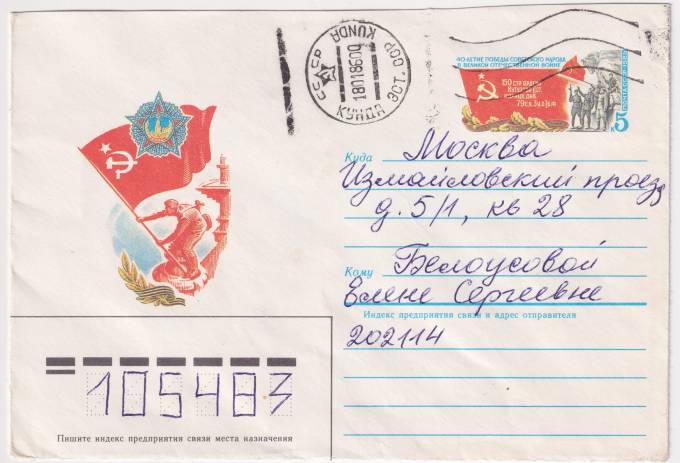 СССР KUNDA
180186 00
КУНДА ЭСТ. ССР
40-ЛЕТИЕ ПОБЕДЫ СОВЕТСКОГО НАРОДА
В ВЕЛИКОЙ ОТЕЧЕСТВЕННОЙ ВОЙНЕ
150 СТР. ОРДЕНА
79 С.К. 3 У.А. 1 Б.Ф.
5
Куда Москва
Измайловский проезд
д. 5/1, кв 28
Кому Белоусовой
Елене Сергеевне
Индекс предприятия связи и адрес отправителя
202114
105483
Пишите индекс предприятия связи места назначения